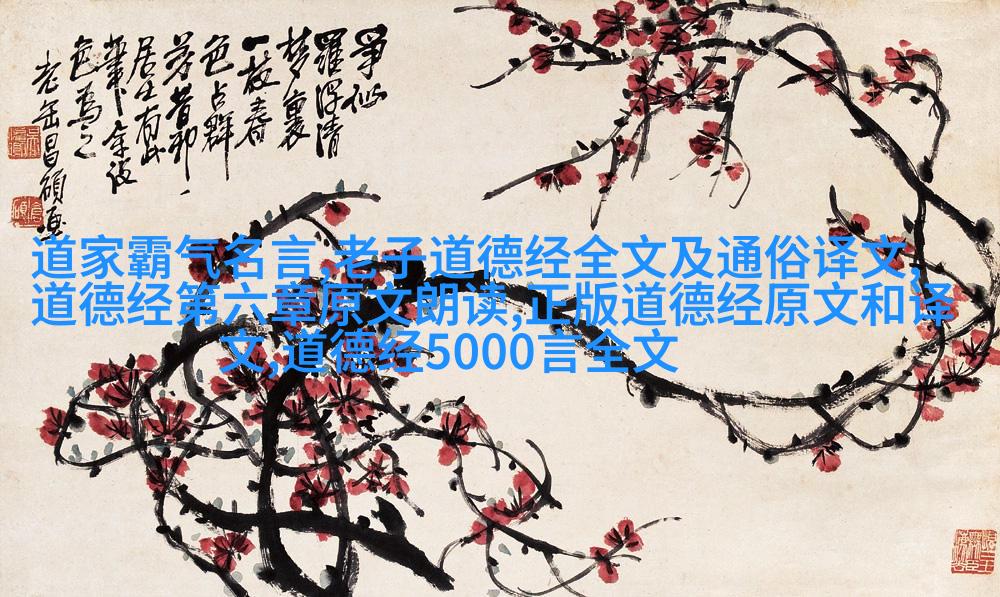 爭似
羅浮清
夢裏
一枝春
色占群
芳昔邪
居士有此
色為之
老缶昌碩
道家霸气名言,老子道德经全文及通俗译文,
道德经第六章原文朗读,正版道德经原文和译
文,道德经5000言全文